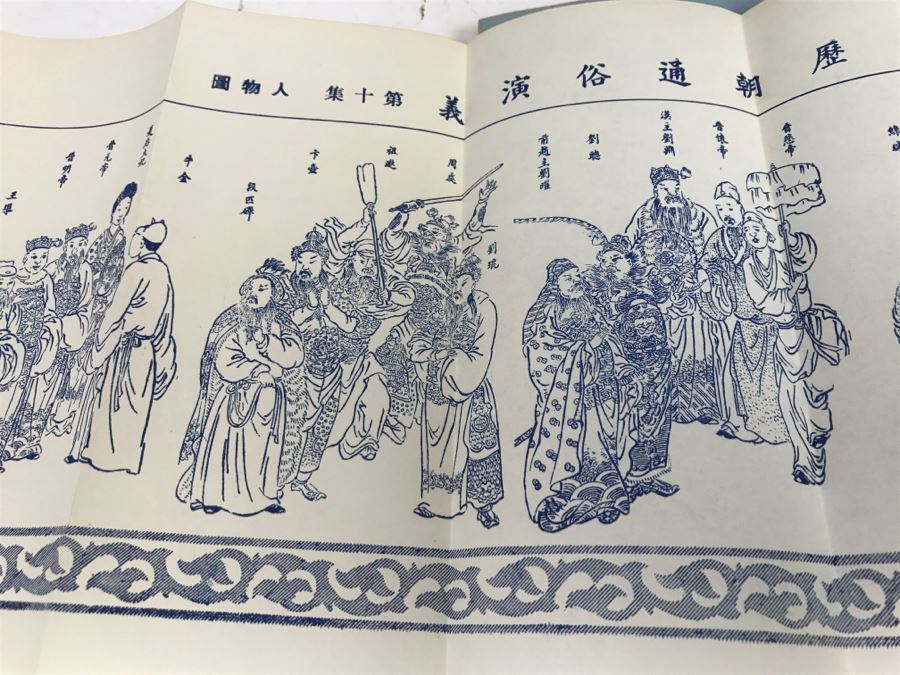 歷朝通俗演義第十集人物圖
晉愍帝
晉懷帝
漢主劉淵
劉聰
前趙主劉曜
劉琨
周處
祖逖
卞壼
段匹磾
牛金
晉元帝
晉明帝
王導